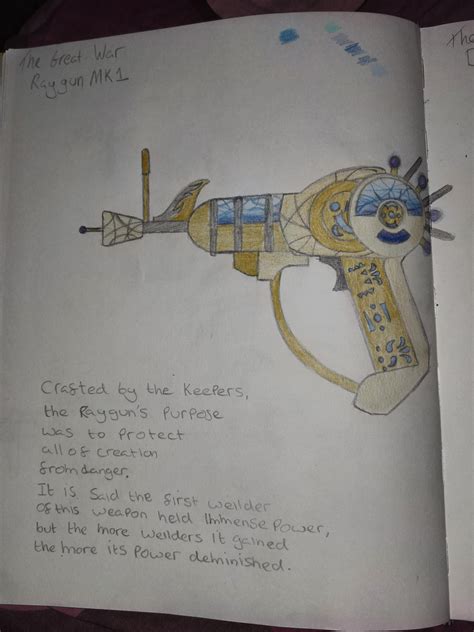 The Great War
Raygun MK1
The
Crafted by the Keepers,
the Raygun's Purpose
was to Protect
all of creation
from danger.
It is said the first weilder
of this weapon held Immense Power,
but the more weilders It gained
the more its Power deminished.